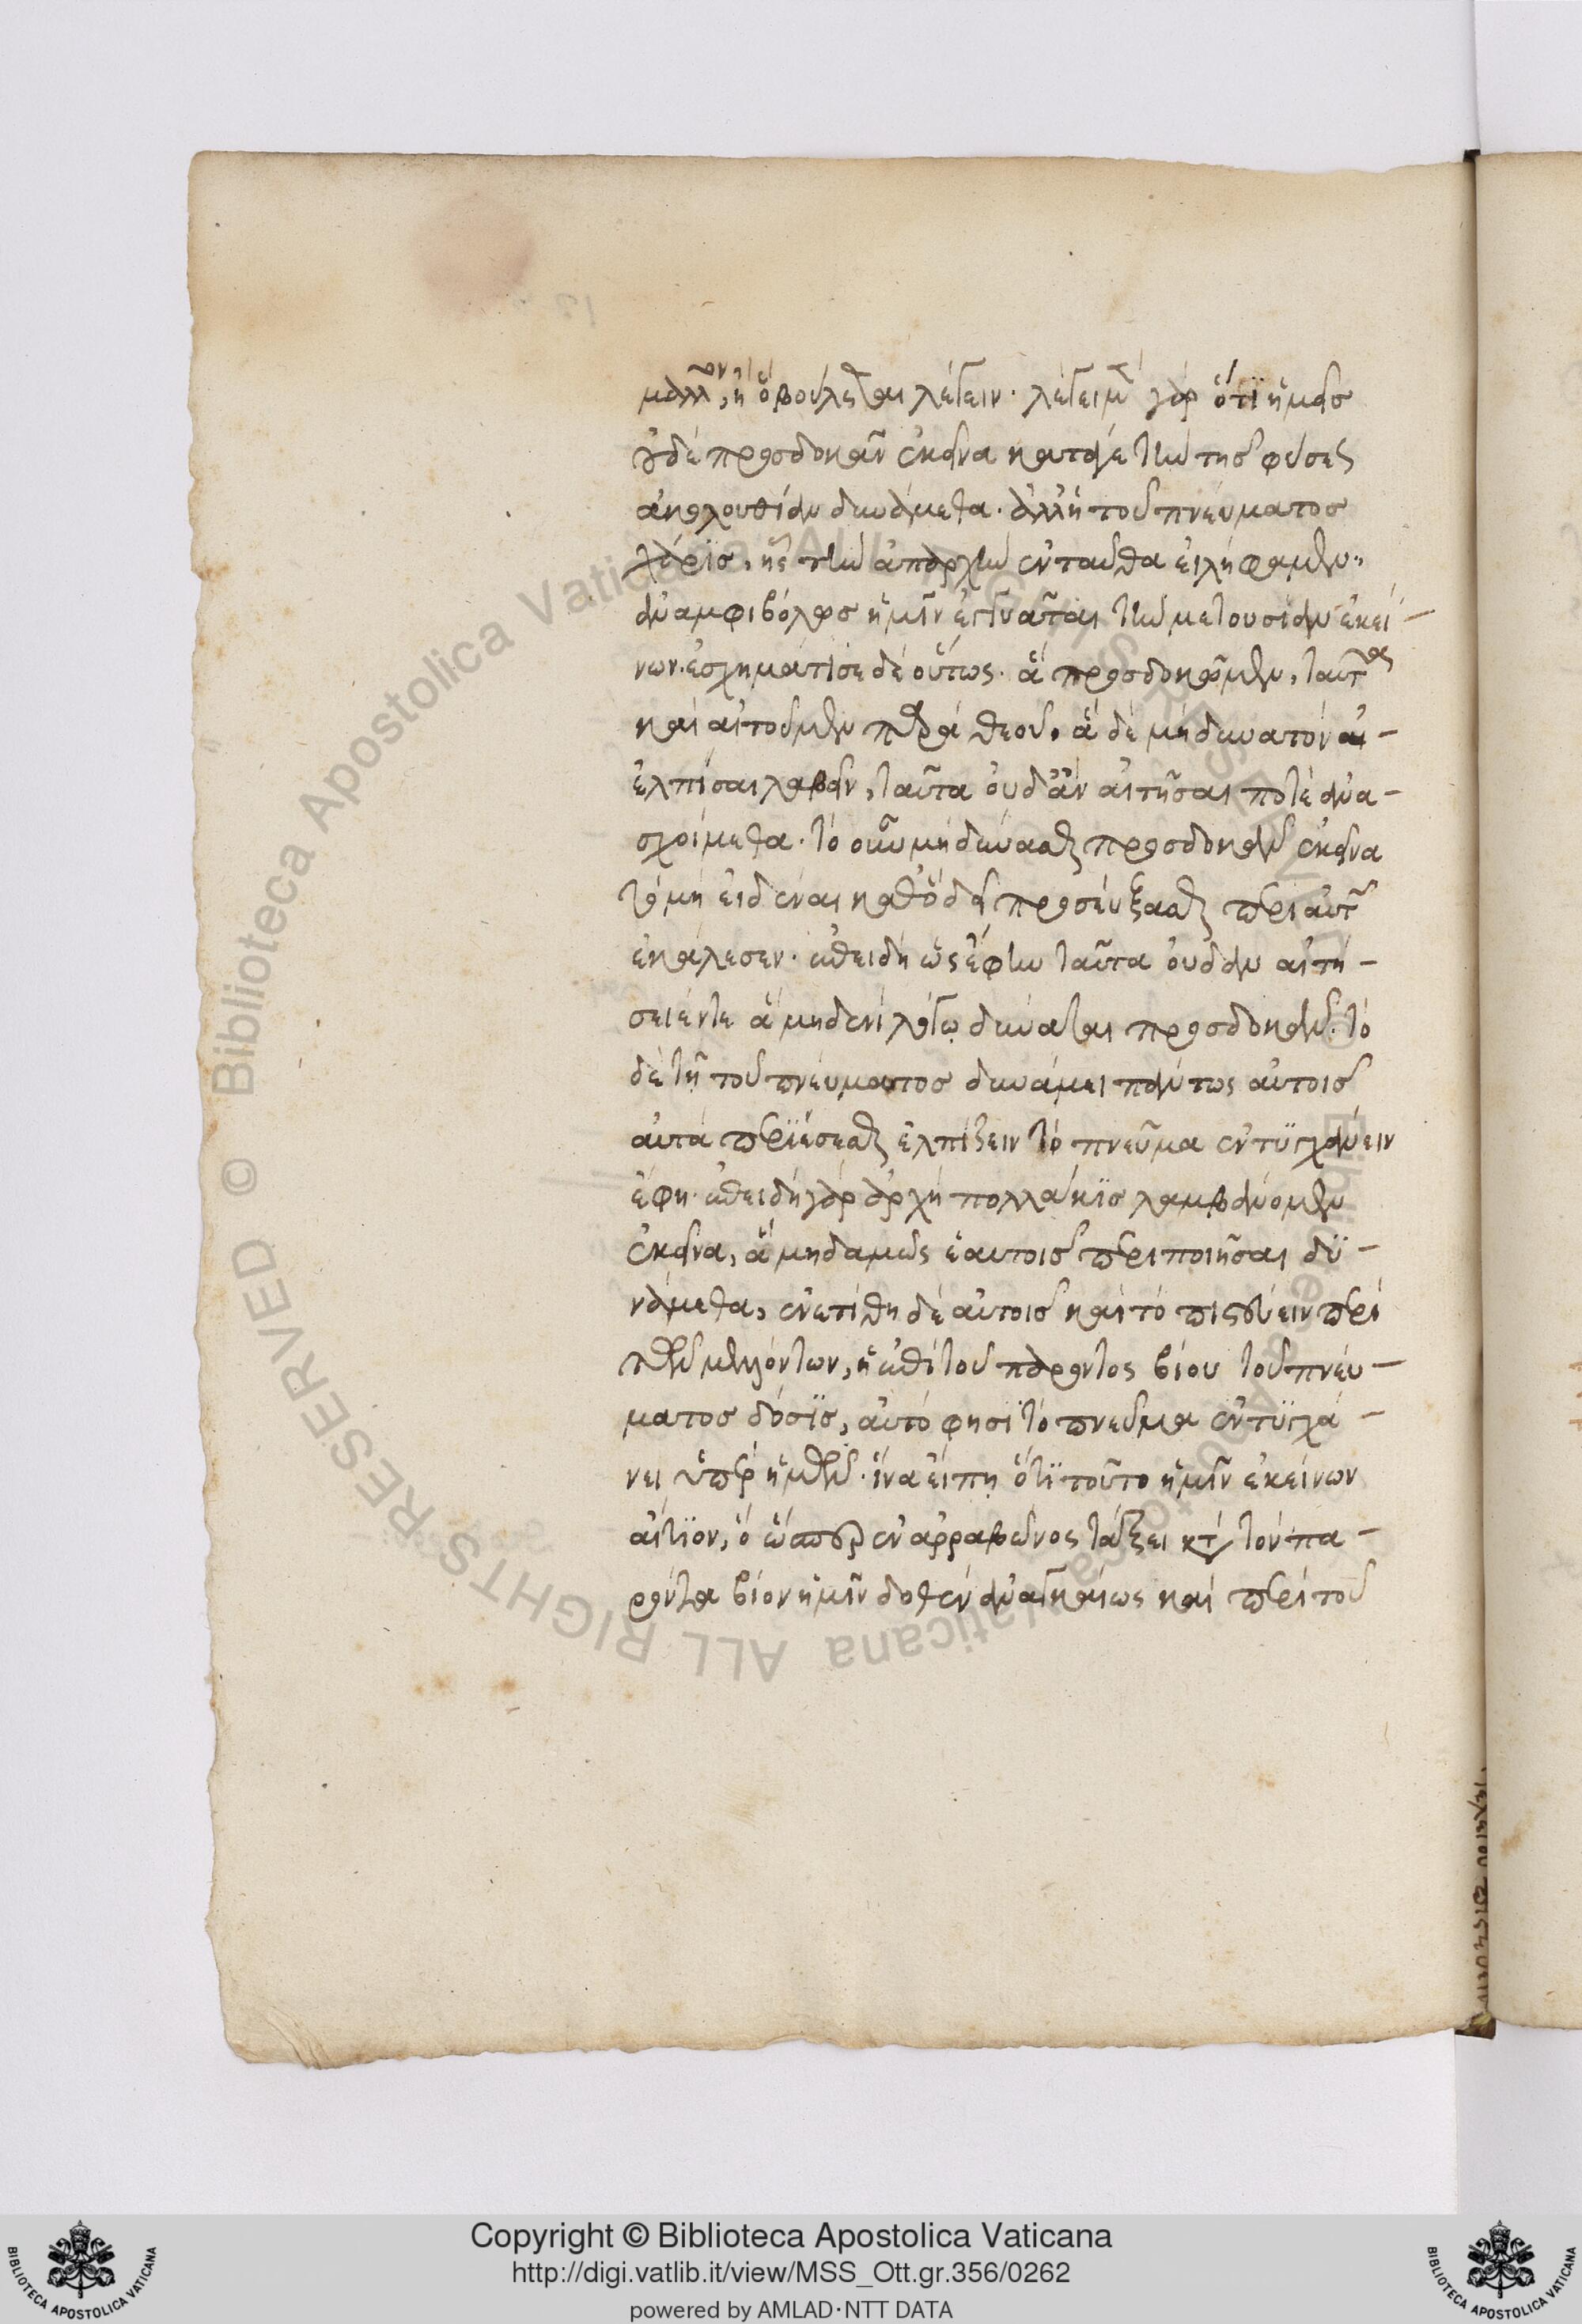 μᾶλλον, ἢ ὃ βούλεται λέγειν. λέγει μὲν γὰρ ὅτι ἡμᾶς
οὐδὲ προσδοκᾶν ἐκεῖνα κατά γε τὴν τῆς φύσεως
ἀκολουθίαν δυνάμεθα. ἀλλ' ἡ τοῦ πνεύματος
χάρις, ἧς τὴν ἀπαρχὴν ἐνταῦθα εἰλήφαμεν,
ἀναμφιβόλως ἡμῖν ἐγγυᾶται τὴν μετουσίαν ἐκεί-
νων. ἐσχημάτισε δὲ οὕτως. ἃ προσδοκῶμεν, ταῦτα
καὶ αἰτοῦμεν παρὰ θεοῦ. ἃ δὲ μὴ δυνατὸν
ἐλπίσαι λαβεῖν, ταῦτα οὐδ' ἂν αἰτῆσαι ποτὲ ἀνα-
σχοίμεθα. τὸ οὖν μὴ δύνασθαι προσδοκᾶν ἐκεῖνα
τὸ μὴ εἰδέναι καθὸ δεῖ προσεύξασθαι περὶ αὐτῶν
ἐκάλεσεν. ἐπειδὴ ὡς ἔφην ταῦτα οὐδ' ἂν αἰτή-
σειέν τε ἃ μηδενὶ λόγῳ δύναται προσδοκᾶν. τὸ
δὲ τῇ τοῦ πνεύματος δυνάμει πάντως αὐτοῖς
αὐτὰ περιέσεσθαι ἐλπίζειν τὸ πνεῦμα ἐντυγχάνειν
ἔφη. ἐπειδὴ γὰρ ἀρχὴ πολλάκις λαμβάνομεν
ἐκεῖνα, ἃ μηδαμῶς ἑαυτοῖς περιποιῆσαι δυ-
νάμεθα, ἐνετίθη δὲ αὐτοῖς καὶ τὸ πιστεύειν περὶ
τῶν μελλόντων, ἡ ἐπὶ τοῦ παρόντος βίου τοῦ πνεύ-
ματος δόσις, αὐτό φησι τὸ πνεῦμα ἐντυγχά-
νει ὑπὲρ ἡμῶν. ἵνα εἴπῃ ὅτι τοῦτο ἡμῖν ἐκείνων
αἴτιον, ὃ ὥσπερ ἐν ἀρραβῶνος τάξει κατὰ τὸν πα-
ρόντα βίον ἡμῖν δοθὲν ἀναγκαίως καὶ περὶ τοῦ
Copyright © Biblioteca Apostolica Vaticana
http://digi.vatlib.it/view/MSS_Ott.gr.356/0262
powered by AMLAD·NTT DATA